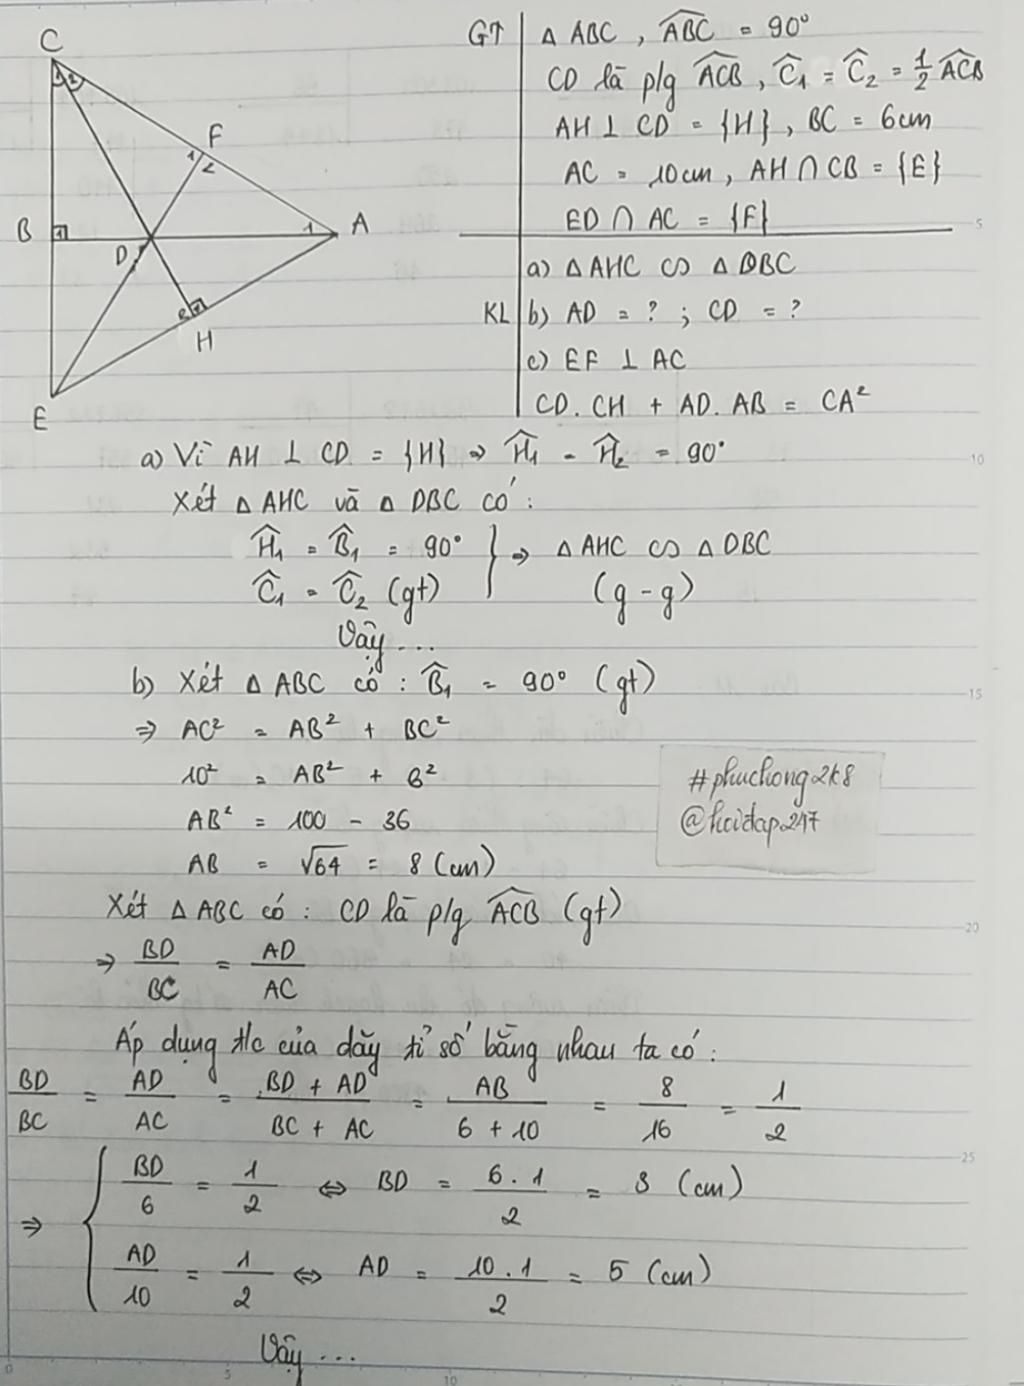 C
1 2
F
1 2
B 1
D
1 A
2 1
H
E
GT
△ ABC , ABC^ = 90°
CD là p/g ACB^ , C^₁ = C^₂ = 1/2 ACB^
AH ⊥ CD = {H} , BC = 6cm
AC = 10cm , AH ∩ CB = {E}
ED ∩ AC = {F}
KL
a) △ AHC ∽ △ DBC
b) AD = ? ; CD = ?
c) EF ⊥ AC
CD . CH + AD . AB = CA²
a) Vì AH ⊥ CD = {H} ⇒ H^₁ = H^₂ = 90°
Xét △ AHC và △ DBC có :
H^₁ = B^₁ = 90°
C^₁ = C^₂ (gt)
} ⇒ △ AHC ∽ △ DBC
(g - g)
Vậy ...
b) Xét △ ABC có : B^₁ = 90° (gt)
⇒ AC² = AB² + BC²
10² = AB² + 8²
AB² = 100 - 36
AB = √64 = 8 (cm)
#phuchong2k8
@hoidap247
Xét △ ABC có : CD là p/g ACB^ (gt)
⇒ BD/BC = AD/AC
Áp dụng t/c của dãy tỉ số bằng nhau ta có :
BD/BC = AD/AC = BD + AD/BC + AC = AB/6 + 10 = 8/16 = 1/2
⇒ { BD/6 = 1/2 ⇔ BD = 6 . 1/2 = 3 (cm)
AD/10 = 1/2 ⇔ AD = 10 . 1/2 = 5 (cm)
Vậy ...
5
10
15
20
25
0 5 10